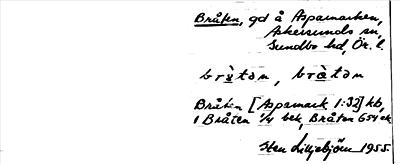 Bråten, gd å Aspamarken,
Askersunds sn,
Sundbo hd, Ör. l.
brɷ̀tən, bràtən
Bråten [Aspamark 1:32] kb,
1 Bråten 1/4 bek, Bråten 654 ek
Sten Lilljebjörn 1955.